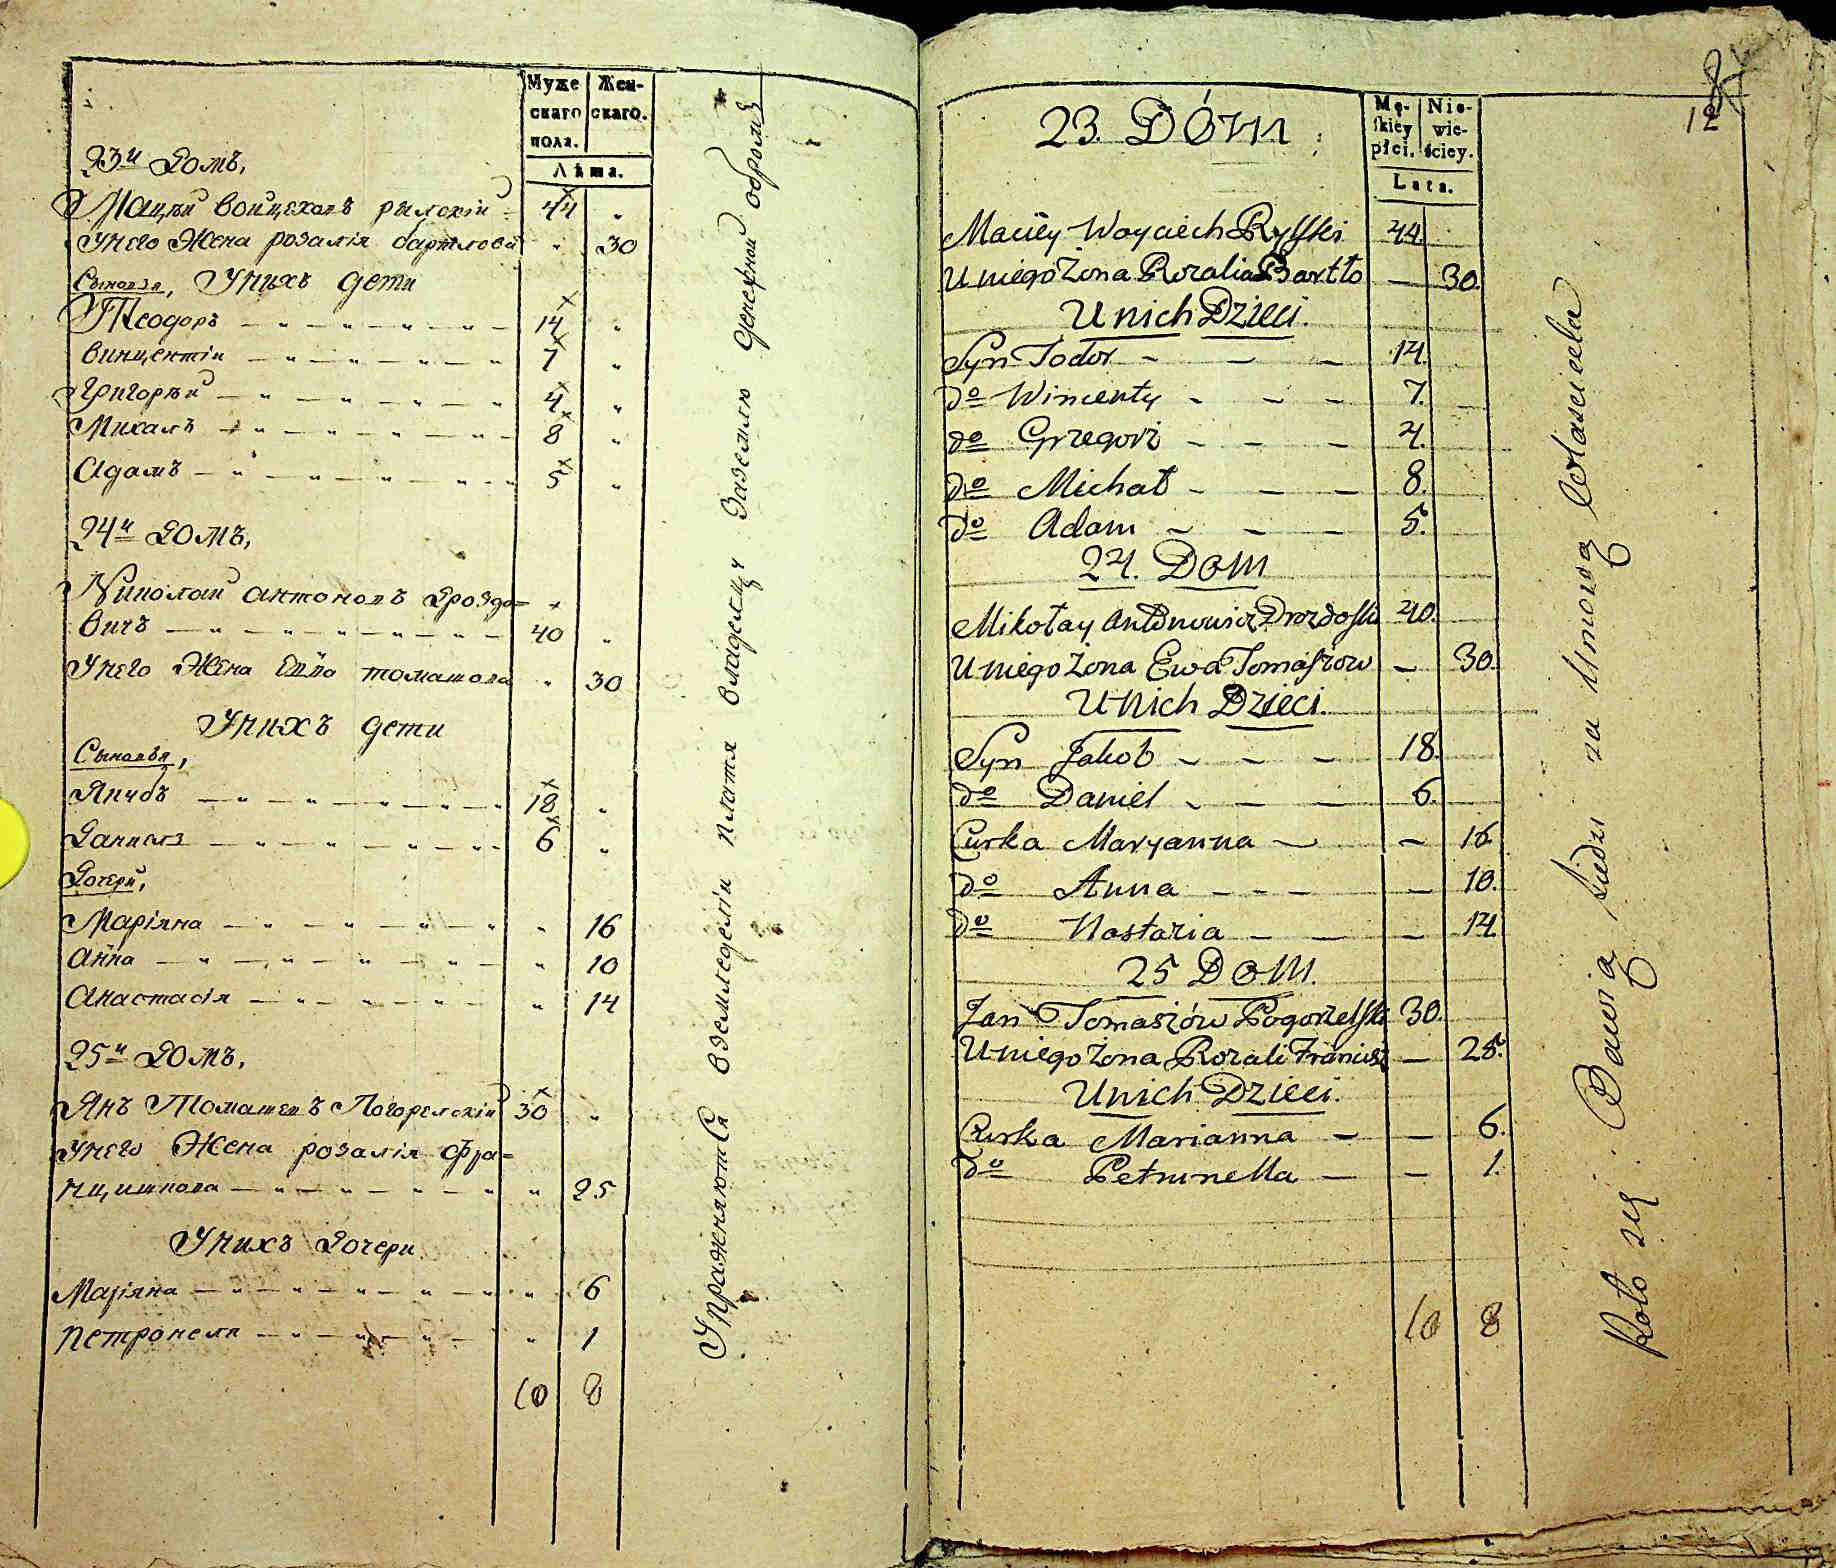 Муже Жен-
скаго скаго.
пола.
Лѣта.
23й Домъ,
Мацѣй Войцеховъ рылскій 44 „
Унего Жена розалія бартлова „ 30
Сыновья, Унихъ дети
Теодоръ — „ — „ — „ — 14 „
Винцентій — „ — „ — „ — 7 „
Григорѣй — „ — „ — „ — 4 „
Михалъ — „ — „ — „ — 8 „
Адамъ — „ — „ — „ — 5 „
24й Домъ,
Николай Антоновъ Дроздо=
вичъ — „ — „ — „ — 40 „
Унего Жена Евва томашова „ 30
Унихъ дети
Сыновья,
Якубъ — „ — „ — „ — 18 „
Даниелъ — „ — „ — „ — 6 „
Дочери,
Маріяна — „ — „ — „ — „ 16
Анна — „ — „ — „ — „ 10
Анастасія — „ — „ — „ — „ 14
25й Домъ,
Янъ Томашевъ Погорелскій 30 „
Унего Жена розалія Фра=
нцишкова — „ — „ — „ — „ 25
Унихъ Дочери
Маріяна — „ — „ — „ — „ 6
Петронеля — „ — „ — „ — „ 1
10 8
Упражняются вземледеліи платя владелцу Заземлю денежной оброкъ
87
12
23. Dóm
Mę- Nie-
skiey wie-
płci. ściey.
Lata.
Maciey Woyciech Rylski 44.
U niego Żona Rozalia Bartło — 30.
U nich Dzieci.
Syn Todor — — — 14.
do Wincenty - - — 7.
do Grzegorz - - — 4.
do Michał - — — 8.
do Adam - - — 5.
24. Dom
Mikołay Antonowicz Drozdoski 40.
U niego Żona Ewa Tomaszow — 30.
U nich Dzieci.
Syn Jakob - - - 18.
do Daniel - — — 6.
Curka Maryanna — — 16
do Anna - - — — 10.
do Nastazia — — — 14
25 Dom.
Jan Tomaszów Pogorzelski 30.
U niego Żona Rozali Francisz — 25.
U nich Dzieci.
Curka Marianna — — 6.
do Petrunella — — 1.
10 8
Rolo się Bawią siedzi za Umową Własciciela